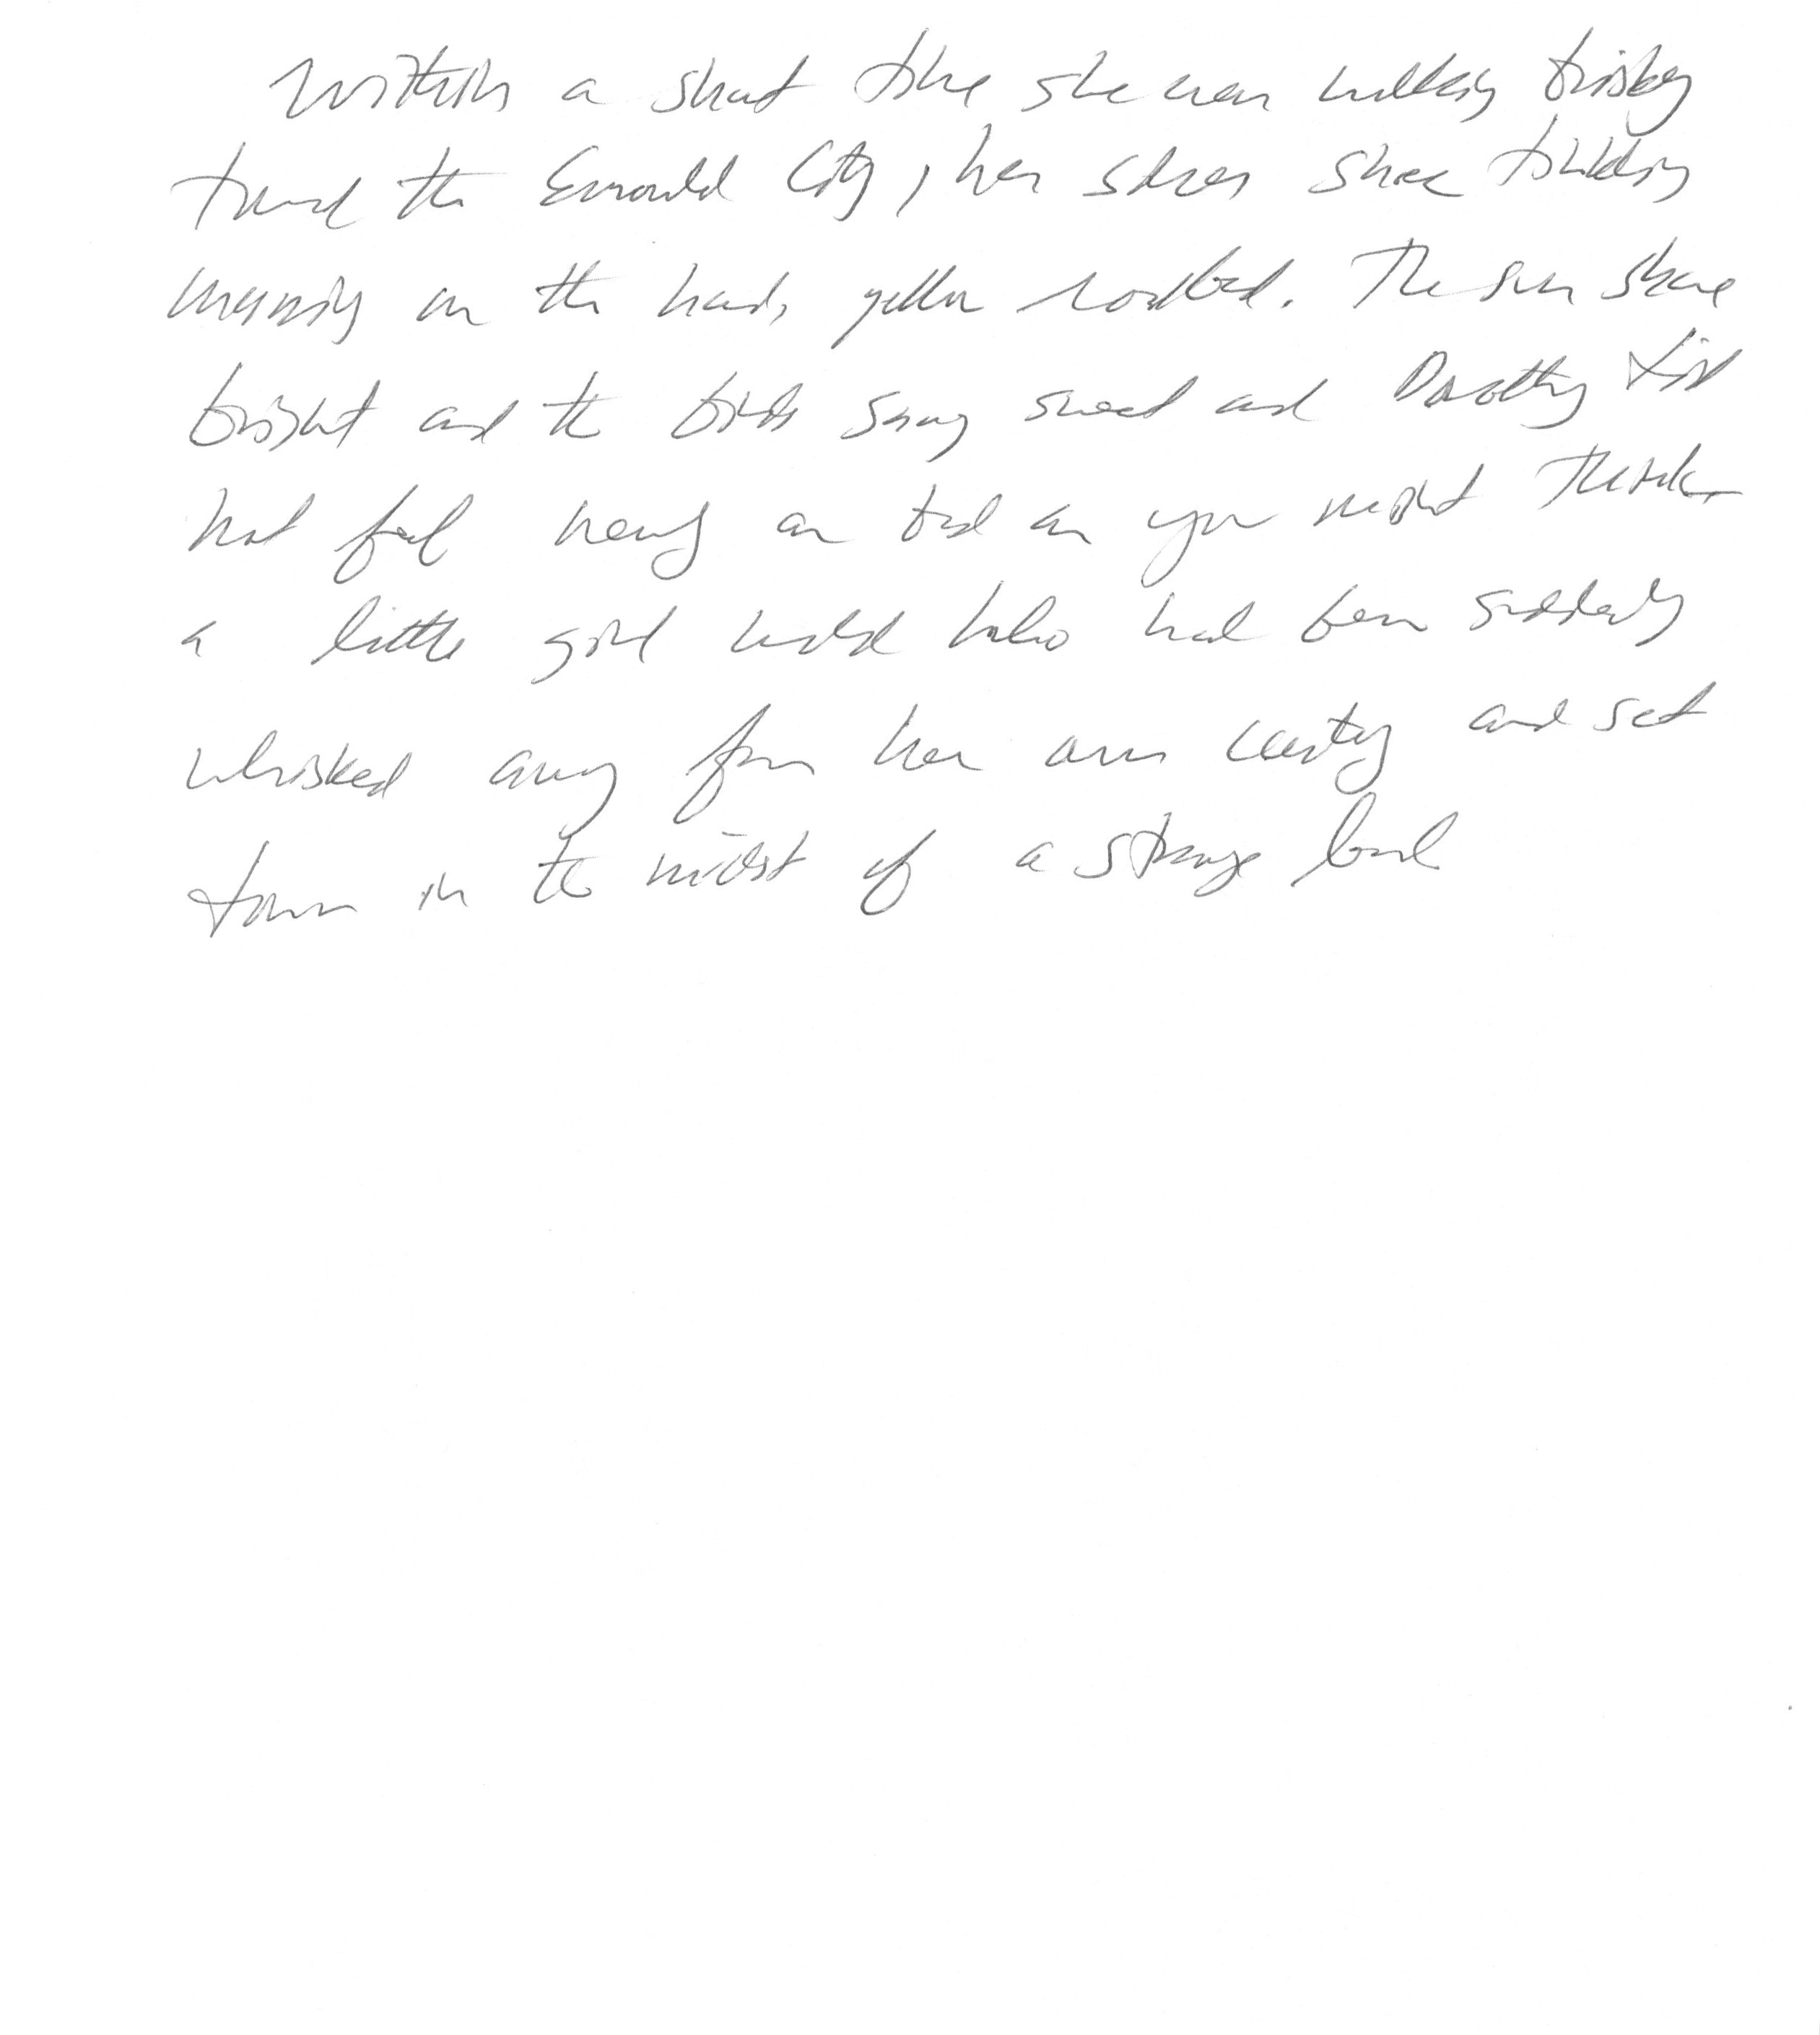 Within a short time she was walking briskly
toward the Emerald City, her silver shoes tinkling
merrily on the hard, yellow roadbed. The sun shone
bright and the birds sang sweet and Dorothy did
not feel nearly as bad as you might think
a little girl would who had been suddenly
whisked away from her own country and set
down in the midst of a strange land